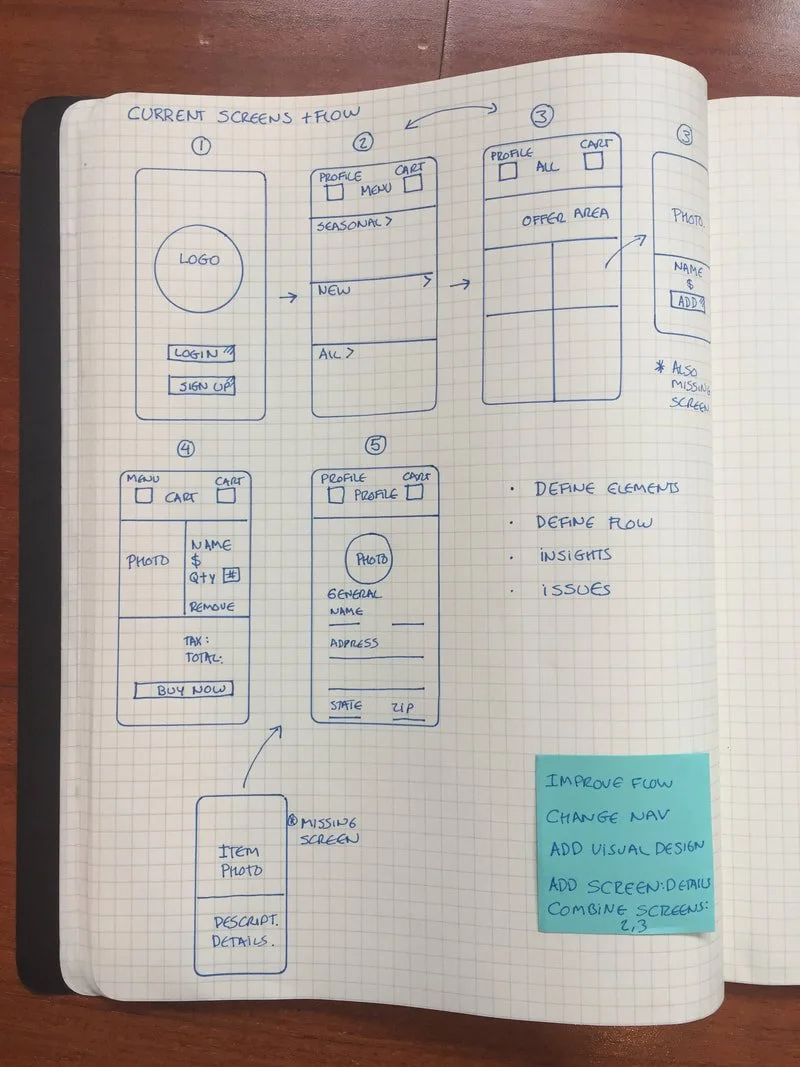 CURRENT SCREENS + FLOW
1
LOGO
LOGIN
SIGN UP
2
PROFILE
CART
MENU
SEASONAL >
NEW >
ALL >
3
PROFILE
CART
ALL
OFFER AREA
3
PHOTO
NAME
$
ADD
* ALSO
MISSING
SCREEN
4
MENU
CART
CART
PHOTO
NAME
$
QTY #
REMOVE
TAX:
TOTAL:
BUY NOW
5
PROFILE
CART
PROFILE
PHOTO
GENERAL
NAME
ADDRESS
STATE
ZIP
· DEFINE ELEMENTS
· DEFINE FLOW
· INSIGHTS
· ISSUES
* MISSING
SCREEN
ITEM
PHOTO
DESCRIPT.
DETAILS.
IMPROVE FLOW
CHANGE NAV
ADD VISUAL DESIGN
ADD SCREEN: DETAILS
COMBINE SCREENS:
2,3